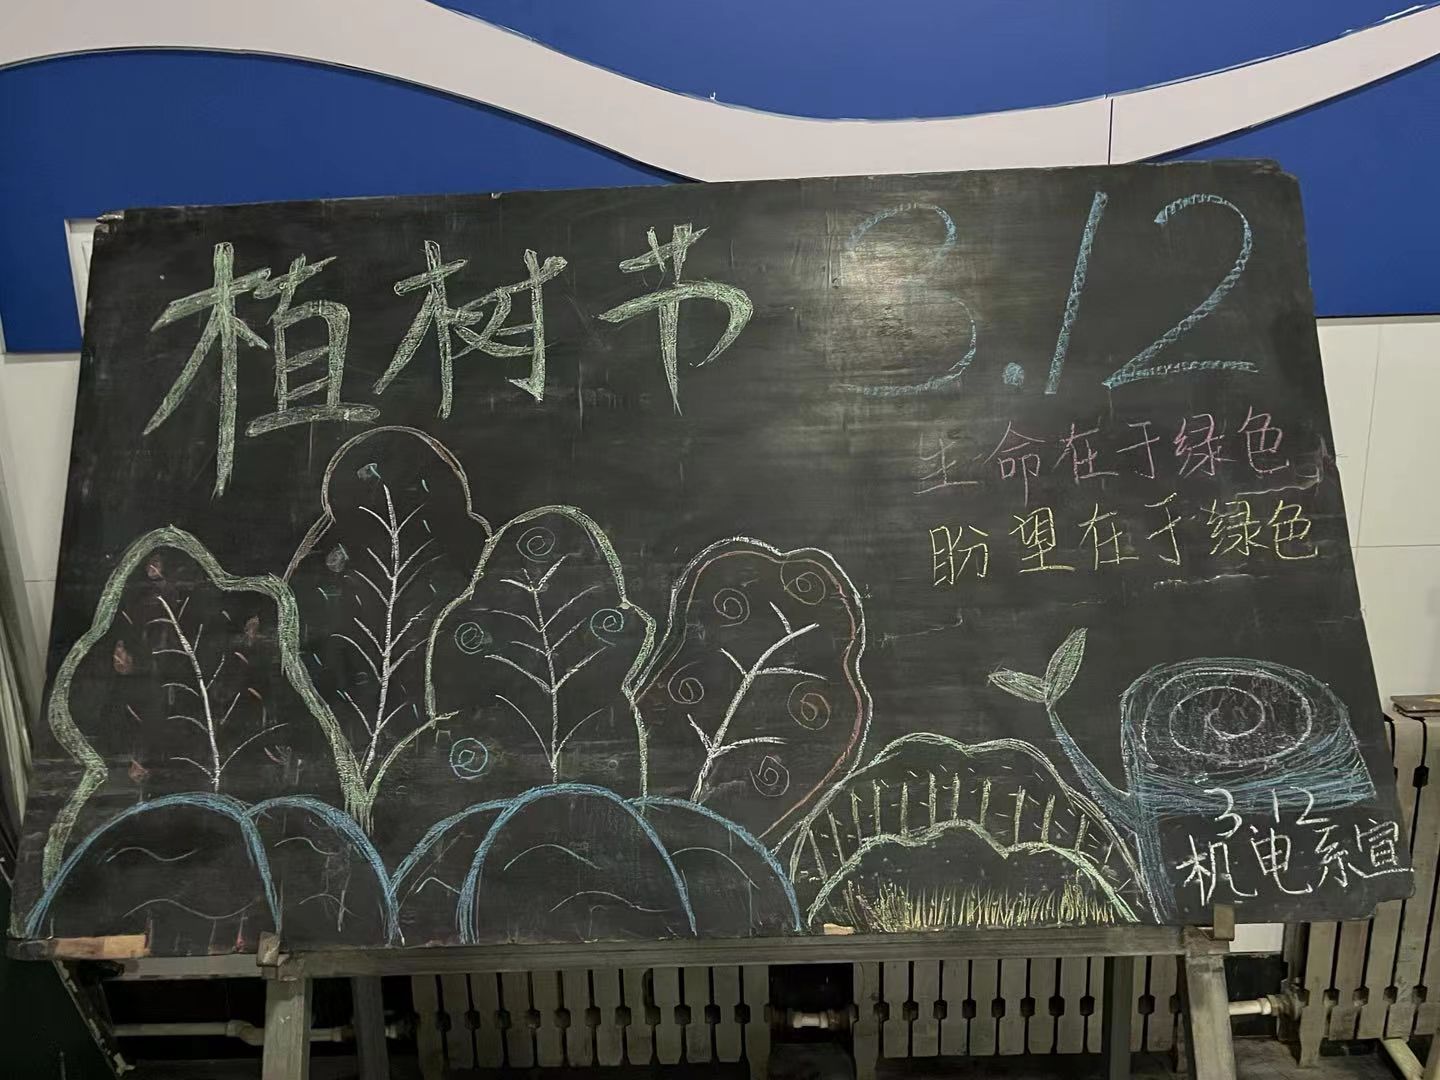 植树节
3.12
生命在于绿色
盼望在于绿色
3.12
机电系宣